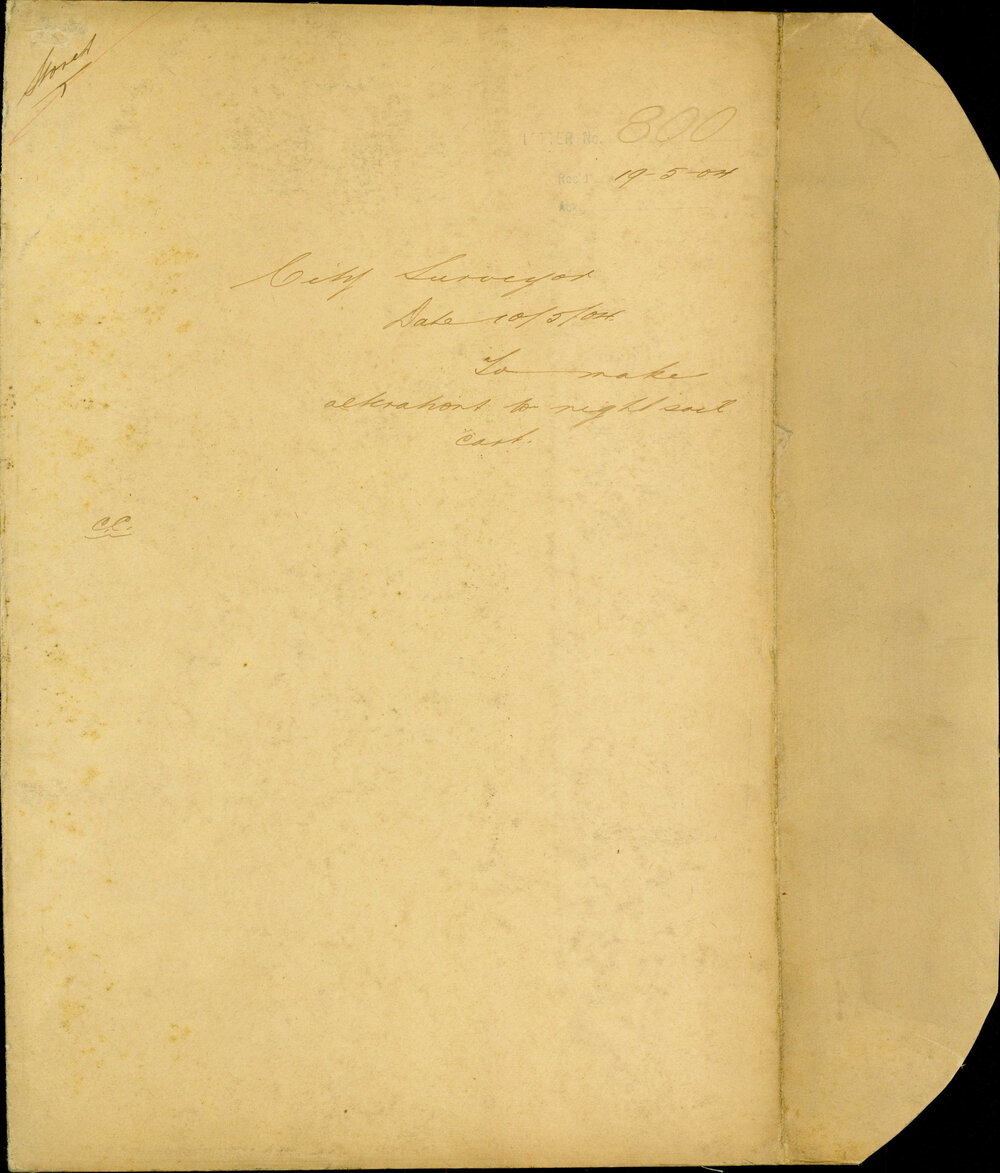 Stored
LETTER No. 800
Rec'd 19-5-04
Ackd
City Surveyor
Date 10/5/04
To make
alterations to night soil
cart.
C.C.